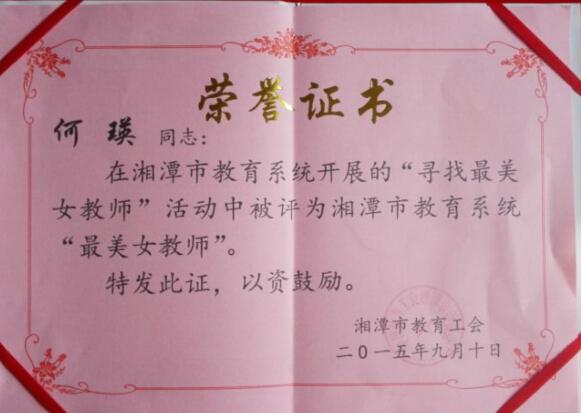 荣誉证书
何 瑛 同志：
在湘潭市教育系统开展的“寻找最美
女教师”活动中被评为湘潭市教育系统
“最美女教师”。
特发此证，以资鼓励。
湘潭市教育工会
二0一五年九月十日